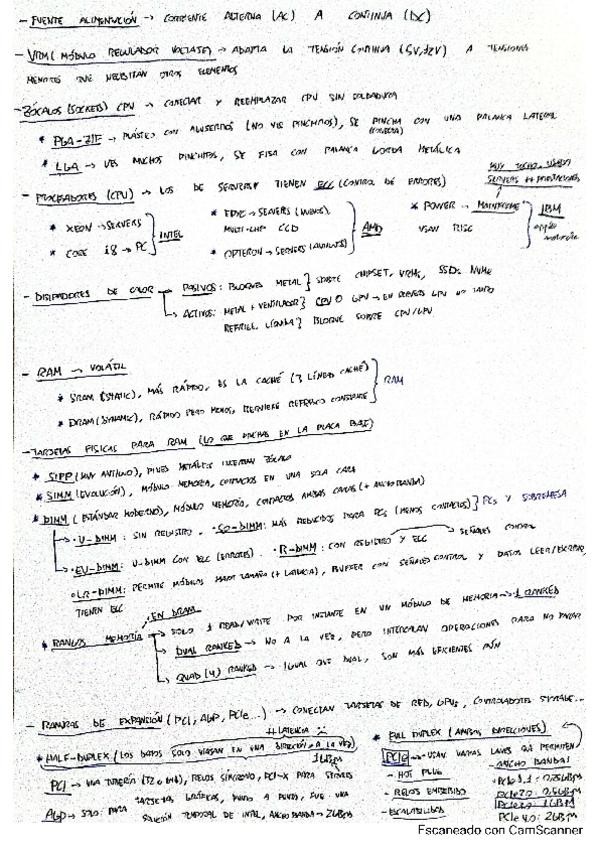 - FUENTE ALIMENTACIÓN -> CORRIENTE ALTERNA (AC) A CONTINUA (DC)
- VRM (MÓDULO REGULADOR VOLTAJE) -> ADAPTA LA TENSIÓN CONTINUA (5V, 12V) A TENSIONES
MENORES QUE NECESITAN OTROS ELEMENTOS
- ZÓCALOS (SOCKETS) CPU -> CONECTAR Y REEMPLAZAR CPU SIN SOLDADURA
* PGA-ZIF -> PLÁSTICO CON AGUJERITOS (NO VES PINCHITOS), SE PINCHA CON UNA PALANCA LATERAL
* LGA -> VES MUCHOS PINCHITOS, SE FIJA CON PALANCA GORDA METÁLICA
- PROCESADORES (CPU) -> LOS DE SERVERS TIENEN ECC (CONTROL DE ERRORES)
* XEON -> SERVERS
* CORE i8 -> PC
INTEL
* EPYC -> SERVERS (NUEVOS),
MULTI-CHIP CCD
* OPTERON -> SERVERS (ANTIGUOS)
AMD
* POWER -> MAINFRAME
USAN RISC
IBM
- DISIPADORES DE CALOR -> PASIVOS: BLOQUES METAL } SOBRE CHIPSET, VRMs, SSDs NVMe
-> ACTIVOS: METAL + VENTILADOR } CPU O GPU -> EN SERVERS GPU NO TANTO
REFRIG. LÍQUIDA } BLOQUE SOBRE CPU/GPU
- RAM -> VOLÁTIL
* SRAM (STATIC), MÁS RÁPIDO, ES LA CACHÉ (3 LÍNEAS CACHÉ)
* DRAM (DYNAMIC), RÁPIDO PERO MENOS, REQUIERE REFRESCO CONSTANTE
RAM
- TARJETAS FÍSICAS PARA RAM (LO QUE PINCHAS EN LA PLACA BASE)
* SIPP (MUY ANTIGUO), PINES METÁLICOS ZÓCALO
* SIMM (EVOLUCIÓN), MÓDULO MEMORIA, CONTACTOS EN UNA SOLA CARA
* DIMM (ESTÁNDAR MODERNO), MÓDULO MEMORIA, CONTACTOS AMBAS CARAS (+ ANCHO BANDA)
· U-DIMM: SIN REGISTRO. · SO-DIMM: MÁS REDUCIDOS PARA PCs (MENOS CONTACTOS) } PCs Y SOBREMESA
· EU-DIMM: U-DIMM CON ECC (ERRORES). · R-DIMM: CON REGISTRO Y ECC -> SEÑALES CONTROL
· LR-DIMM: PERMITE MÓDULOS MAYOR TAMAÑO (+ LATENCIA), BUFFER CON SEÑALES CONTROL Y DATOS LEER/ESCRIBIR,
TIENEN ECC
* RANGOS MEMORIA EN DRAM
-> SOLO 1 READ/WRITE POR INSTANTE EN UN MÓDULO DE MEMORIA -> 1 RANKED
DUAL RANKED -> NO A LA VEZ, PERO INTERCALAN OPERACIONES PARA NO PARAR
QUAD (4) RANKED -> IGUAL QUE DUAL, SON MÁS EFICIENTES AÚN
- RANURAS DE EXPANSIÓN (PCI, AGP, PCIe...) -> CONECTAN TARJETAS DE RED, GPUs, CONTROLADORES STORAGE...
++ LATENCIA
* HALF-DUPLEX (LOS DATOS SOLO VIAJAN EN UNA DIRECCIÓN A LA VEZ)
PCI -> UNA TUBERÍA (32 o 64b), RELOJ SÍNCRONO, PCI-X PARA SERVERS
AGP -> SOLO PARA TARJETAS GRÁFICAS, PUNTO A PUNTO, FUE UNA
SOLUCIÓN TEMPORAL DE INTEL, ANCHO BANDA -> 2GBPS
* FULL DUPLEX (AMBAS DIRECCIONES)
PCIe -> USAN VARIAS LANES QUE PERMITEN
- HOT PLUG
- RELOJ EMBEBIDO
- ESCALABILIDAD
- ANCHO BANDA:
PCIe 4.0: 2GBPS
Escaneado con CamScanner